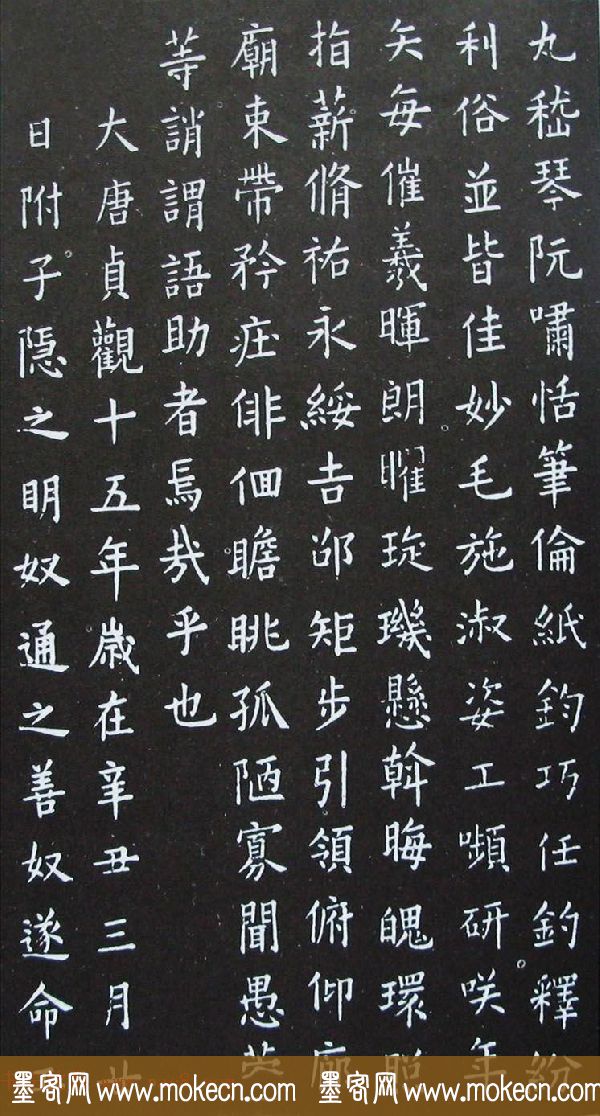 丸嵇琴阮嘯恬筆倫紙鈞巧任釣釋紛
利俗並皆佳妙毛施淑姿工嚬研咲年
矢每催羲暉朗曜琁璣懸斡晦魄環照
指薪脩祐永綏吉邵矩步引領俯仰廊
廟束帶矜庄俳佪瞻眺孤陋寡聞愚蒙
等誚謂語助者焉哉乎也
大唐貞觀十五年歲在辛丑三月
日附子隱之明奴通之善奴遂命
墨客网 www.mokecn.com 墨客网 www.mokecn.com